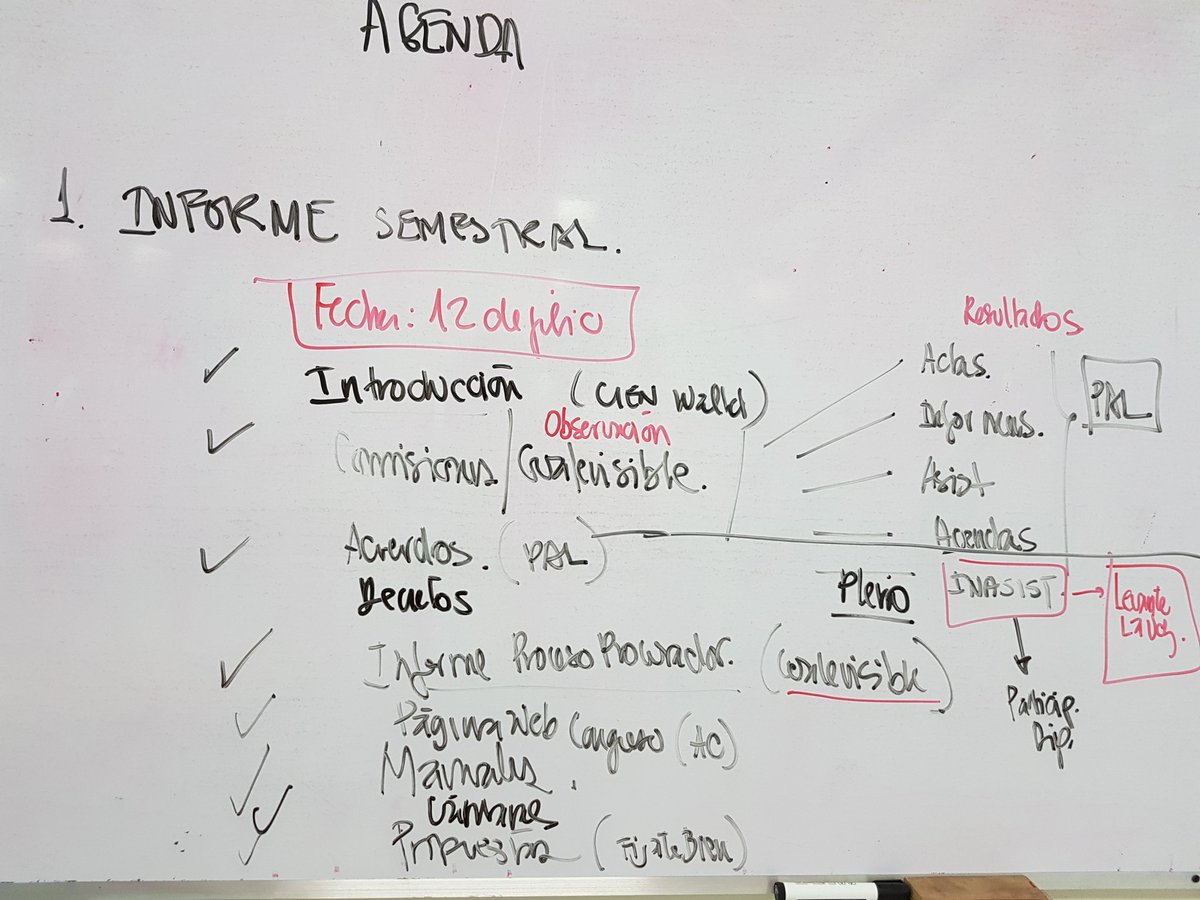 AGENDA
1. INFORME SEMESTRAL.
Fecha: 12 de julio
Introducción (CIEN Wálld)
Comisiones / Observación
Guatevisible.
Acuerdos. (PAL)
Decretos
Informe Proceso Procurador. (Guatevisible)
Página Web Congreso (AC)
Manuales.
Cámaras
Propuestas (Fíjate Bien)
Resultados
Actas.
PAL
Asist
Agendas
Pleno INASIST. →
Levante
La Voz.
Particip.
Dip.